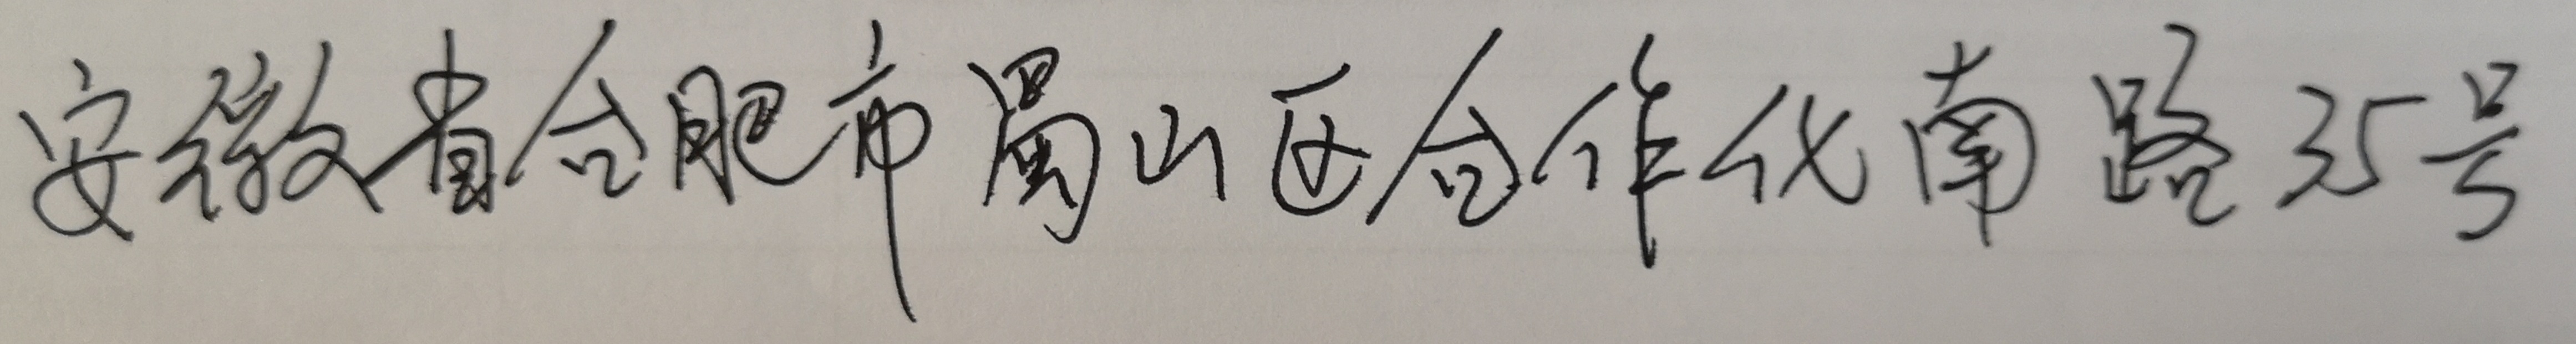 安徽省合肥市蜀山区合作化南路35号